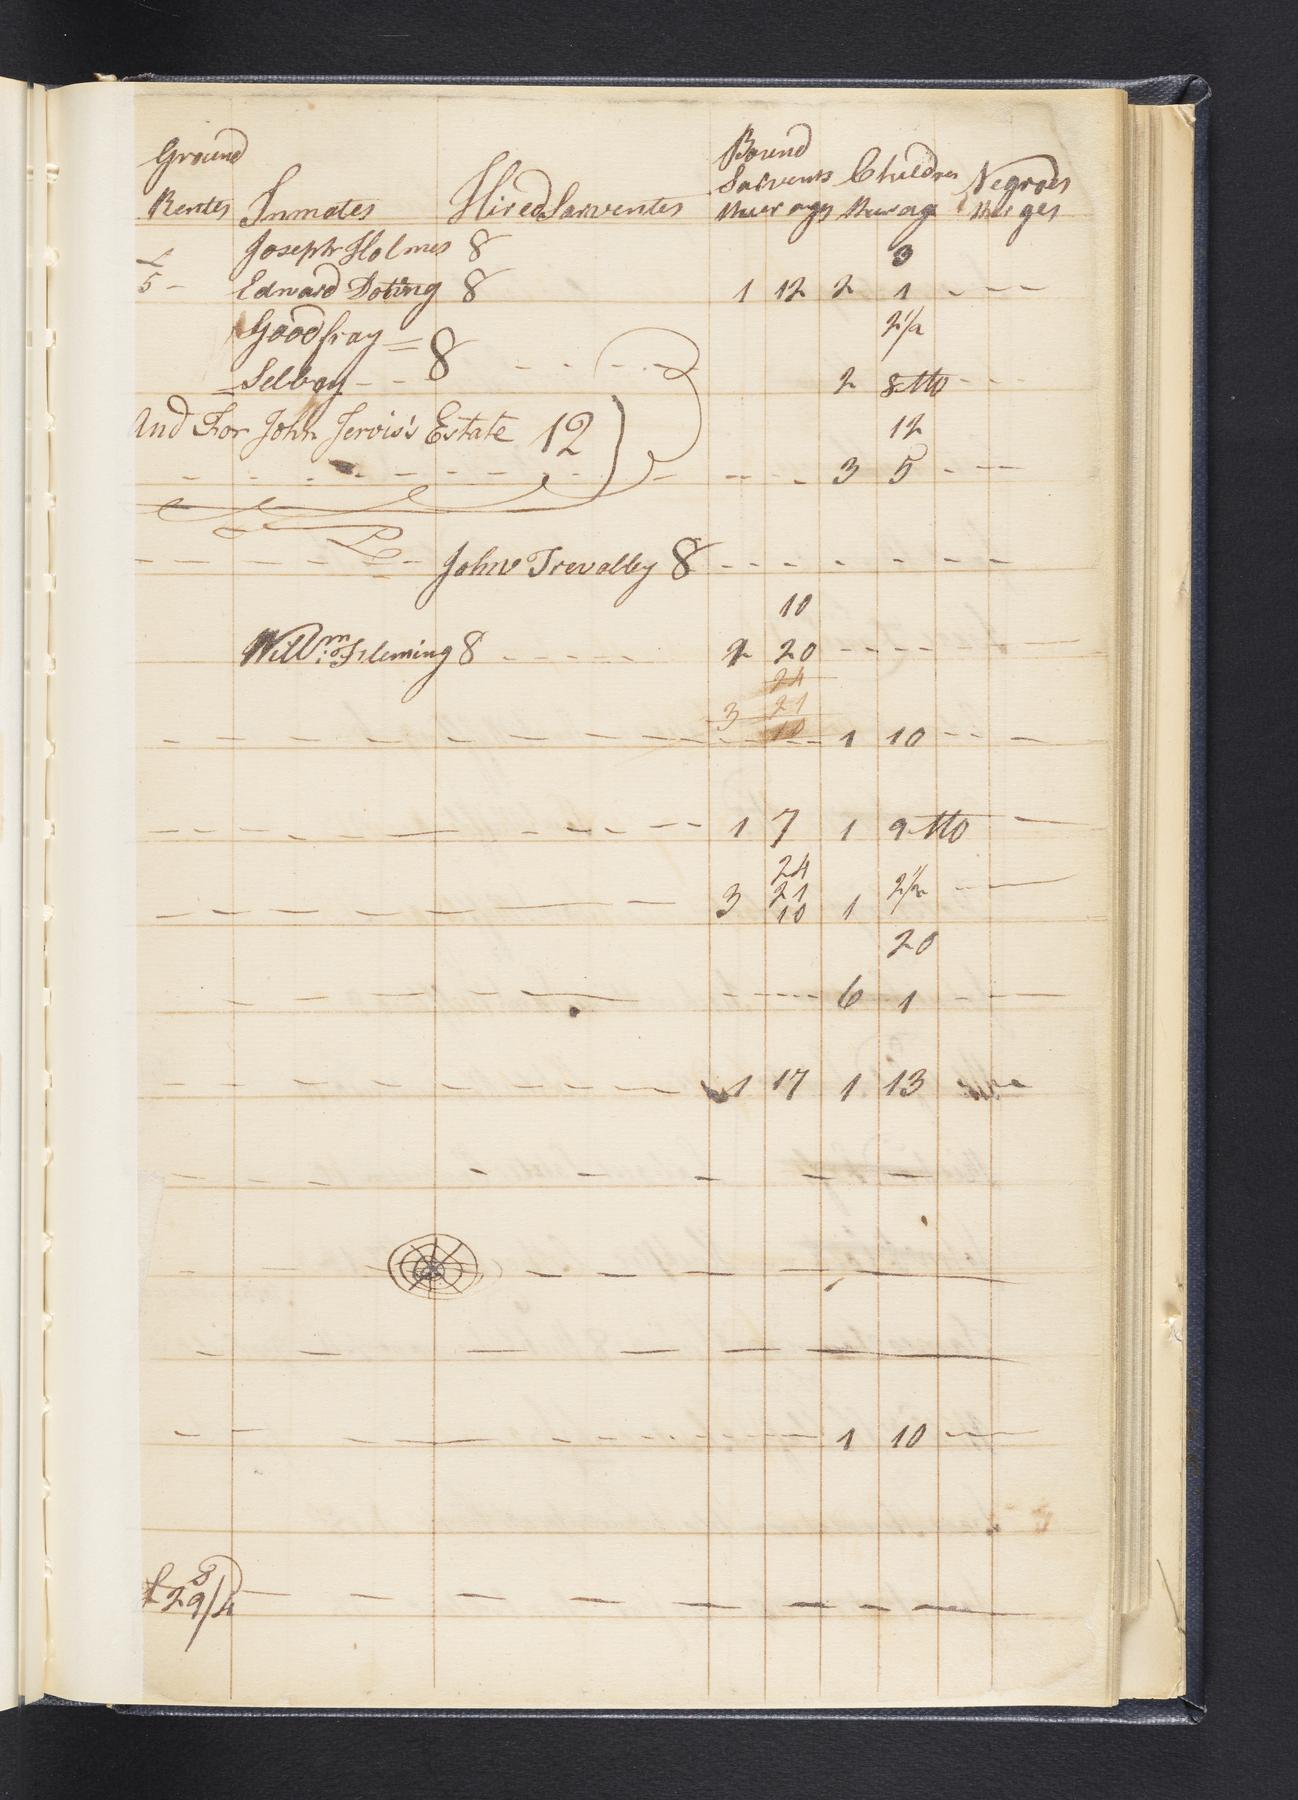 Ground Rentes Inmates Hired Sarventes Bound Sarvents Children Negroes
Joseph Holmes 8 3
£
5 - Edward Doting 8 1 12 2 1 - - -
Goodfray = 8 2 1/2
Selbay - - - - - - 2 8 Mo - - -
And For John Jervis's Estate 12 12
- - - - - - - - - - 3 5 - - -
- - - - John Trevalley 8 - - - - - - -
10
Will:m Fleming 8 - - - - - 2 20 - - - - -
24
3 21
10
- - - - - - - - - - 1 10 - - -
- - - - - - - - - 1 7 1 9 Mo -
24
3 21 1 2 1/2 - -
10
20
- - - - - - - - - - 6 1 - -
- - - - - - - - 1 17 1 13
- - - - - - - -
- - - - - - -
- - - - - - -
- - - - - - - - - - 1 10 - -
8
£ 2 9/4 - - - - - - - -